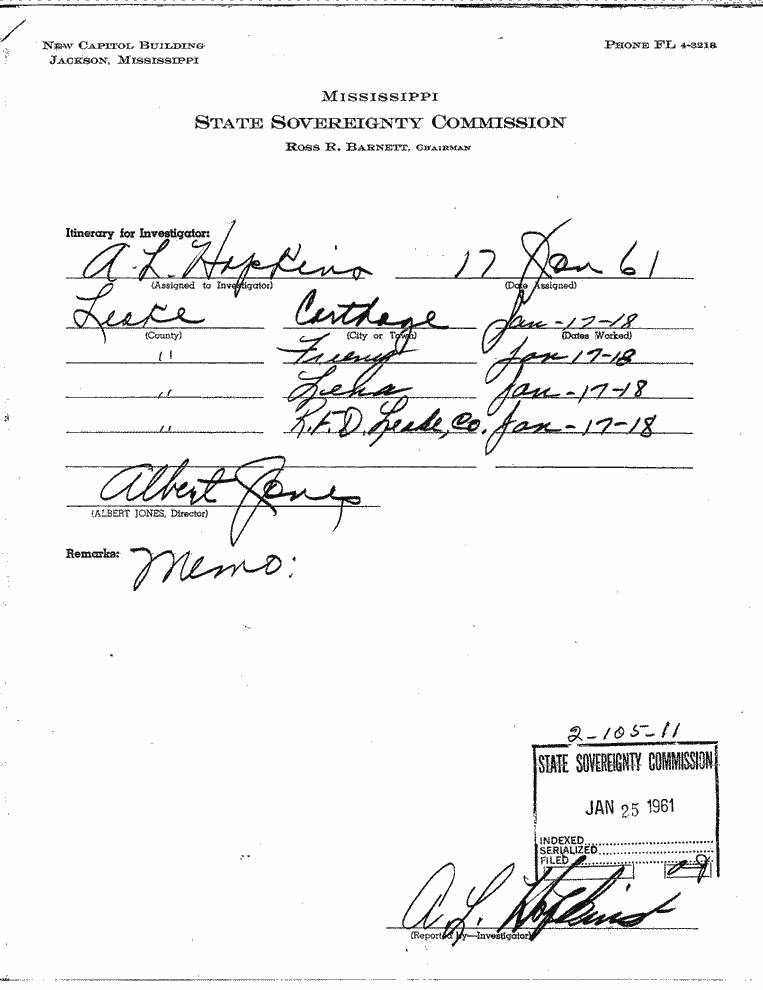 NEW CAPITOL BUILDING
JACKSON, MISSISSIPPI
PHONE FL 4-3218
MISSISSIPPI
STATE SOVEREIGNTY COMMISSION
ROSS R. BARNETT, CHAIRMAN
Itinerary for Investigator:
A. L. Hopkins 17 Jan 61
(Assigned to Investigator) (Date Assigned)
Leake Carthage Jan-17-18
(County) (City or Town) (Dates Worked)
" Freeny Jan 17-18
" Lena Jan-17-18
" R.F.D. Leake, Co. Jan-17-18
Albert Jones
(ALBERT JONES, Director)
Remarks: Memo:
2-105-11
STATE SOVEREIGNTY COMMISSION
JAN 25 1961
INDEXED
SERIALIZED
FILED
A. L. Hopkins
(Reported by—Investigator)